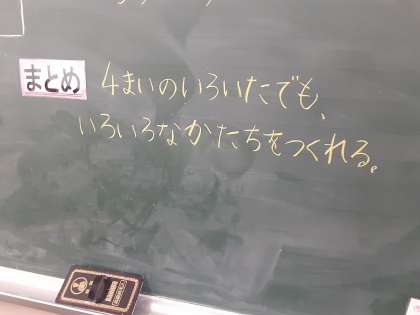 まとめ 4まいのいろいたでも、
いろいろなかたちをつくれる。